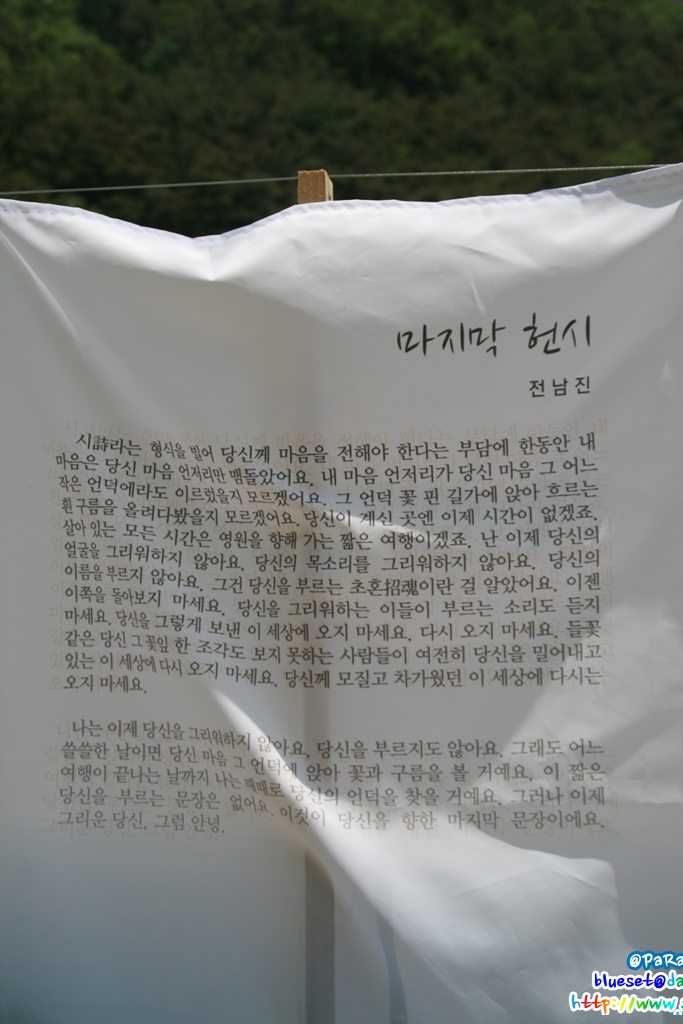 마지막 헌시
전남진
시詩라는 형식을 빌어 당신께 마음을 전해야 한다는 부담에 한동안 내
마음은 당신 마음 언저리만 맴돌았어요. 내 마음 언저리가 당신 마음 그 어느
작은 언덕에라도 이르렀을지 모르겠어요. 그 언덕 꽃 핀 길가에 앉아 흐르는
흰 구름을 올려다봤을지 모르겠어요. 당신이 계신 곳엔 이제 시간이 없겠죠.
살아 있는 모든 시간은 영원을 향해 가는 짧은 여행이겠죠. 난 이제 당신의
얼굴을 그리워하지 않아요. 당신의 목소리를 그리워하지 않아요. 당신의
이름을 부르지 않아요. 그건 당신을 부르는 초혼招魂이란 걸 알았어요. 이젠
이쪽을 돌아보지 마세요. 당신을 그리워하는 이들이 부르는 소리도 듣지
마세요. 당신을 그렇게 보낸 이 세상에 오지 마세요. 다시 오지 마세요. 들꽃
같은 당신 그 꽃잎 한 조각도 보지 못하는 사람들이 여전히 당신을 밀어내고
있는 이 세상에 다시 오지 마세요. 당신께 모질고 차가웠던 이 세상에 다시는
오지 마세요.
나는 이제 당신을 그리워하지 않아요. 당신을 부르지도 않아요. 그래도 어느
쓸쓸한 날이면 당신 마음 그 언덕에 앉아 꽃과 구름을 볼 거예요. 이 짧은
여행이 끝나는 날까지 나는 때때로 당신의 언덕을 찾을 거예요. 그러나 이제
당신을 부르는 문장은 없어요. 이것이 당신을 향한 마지막 문장이에요.
그리운 당신, 그럼 안녕.
@PaRa
blueset@da
http://www.